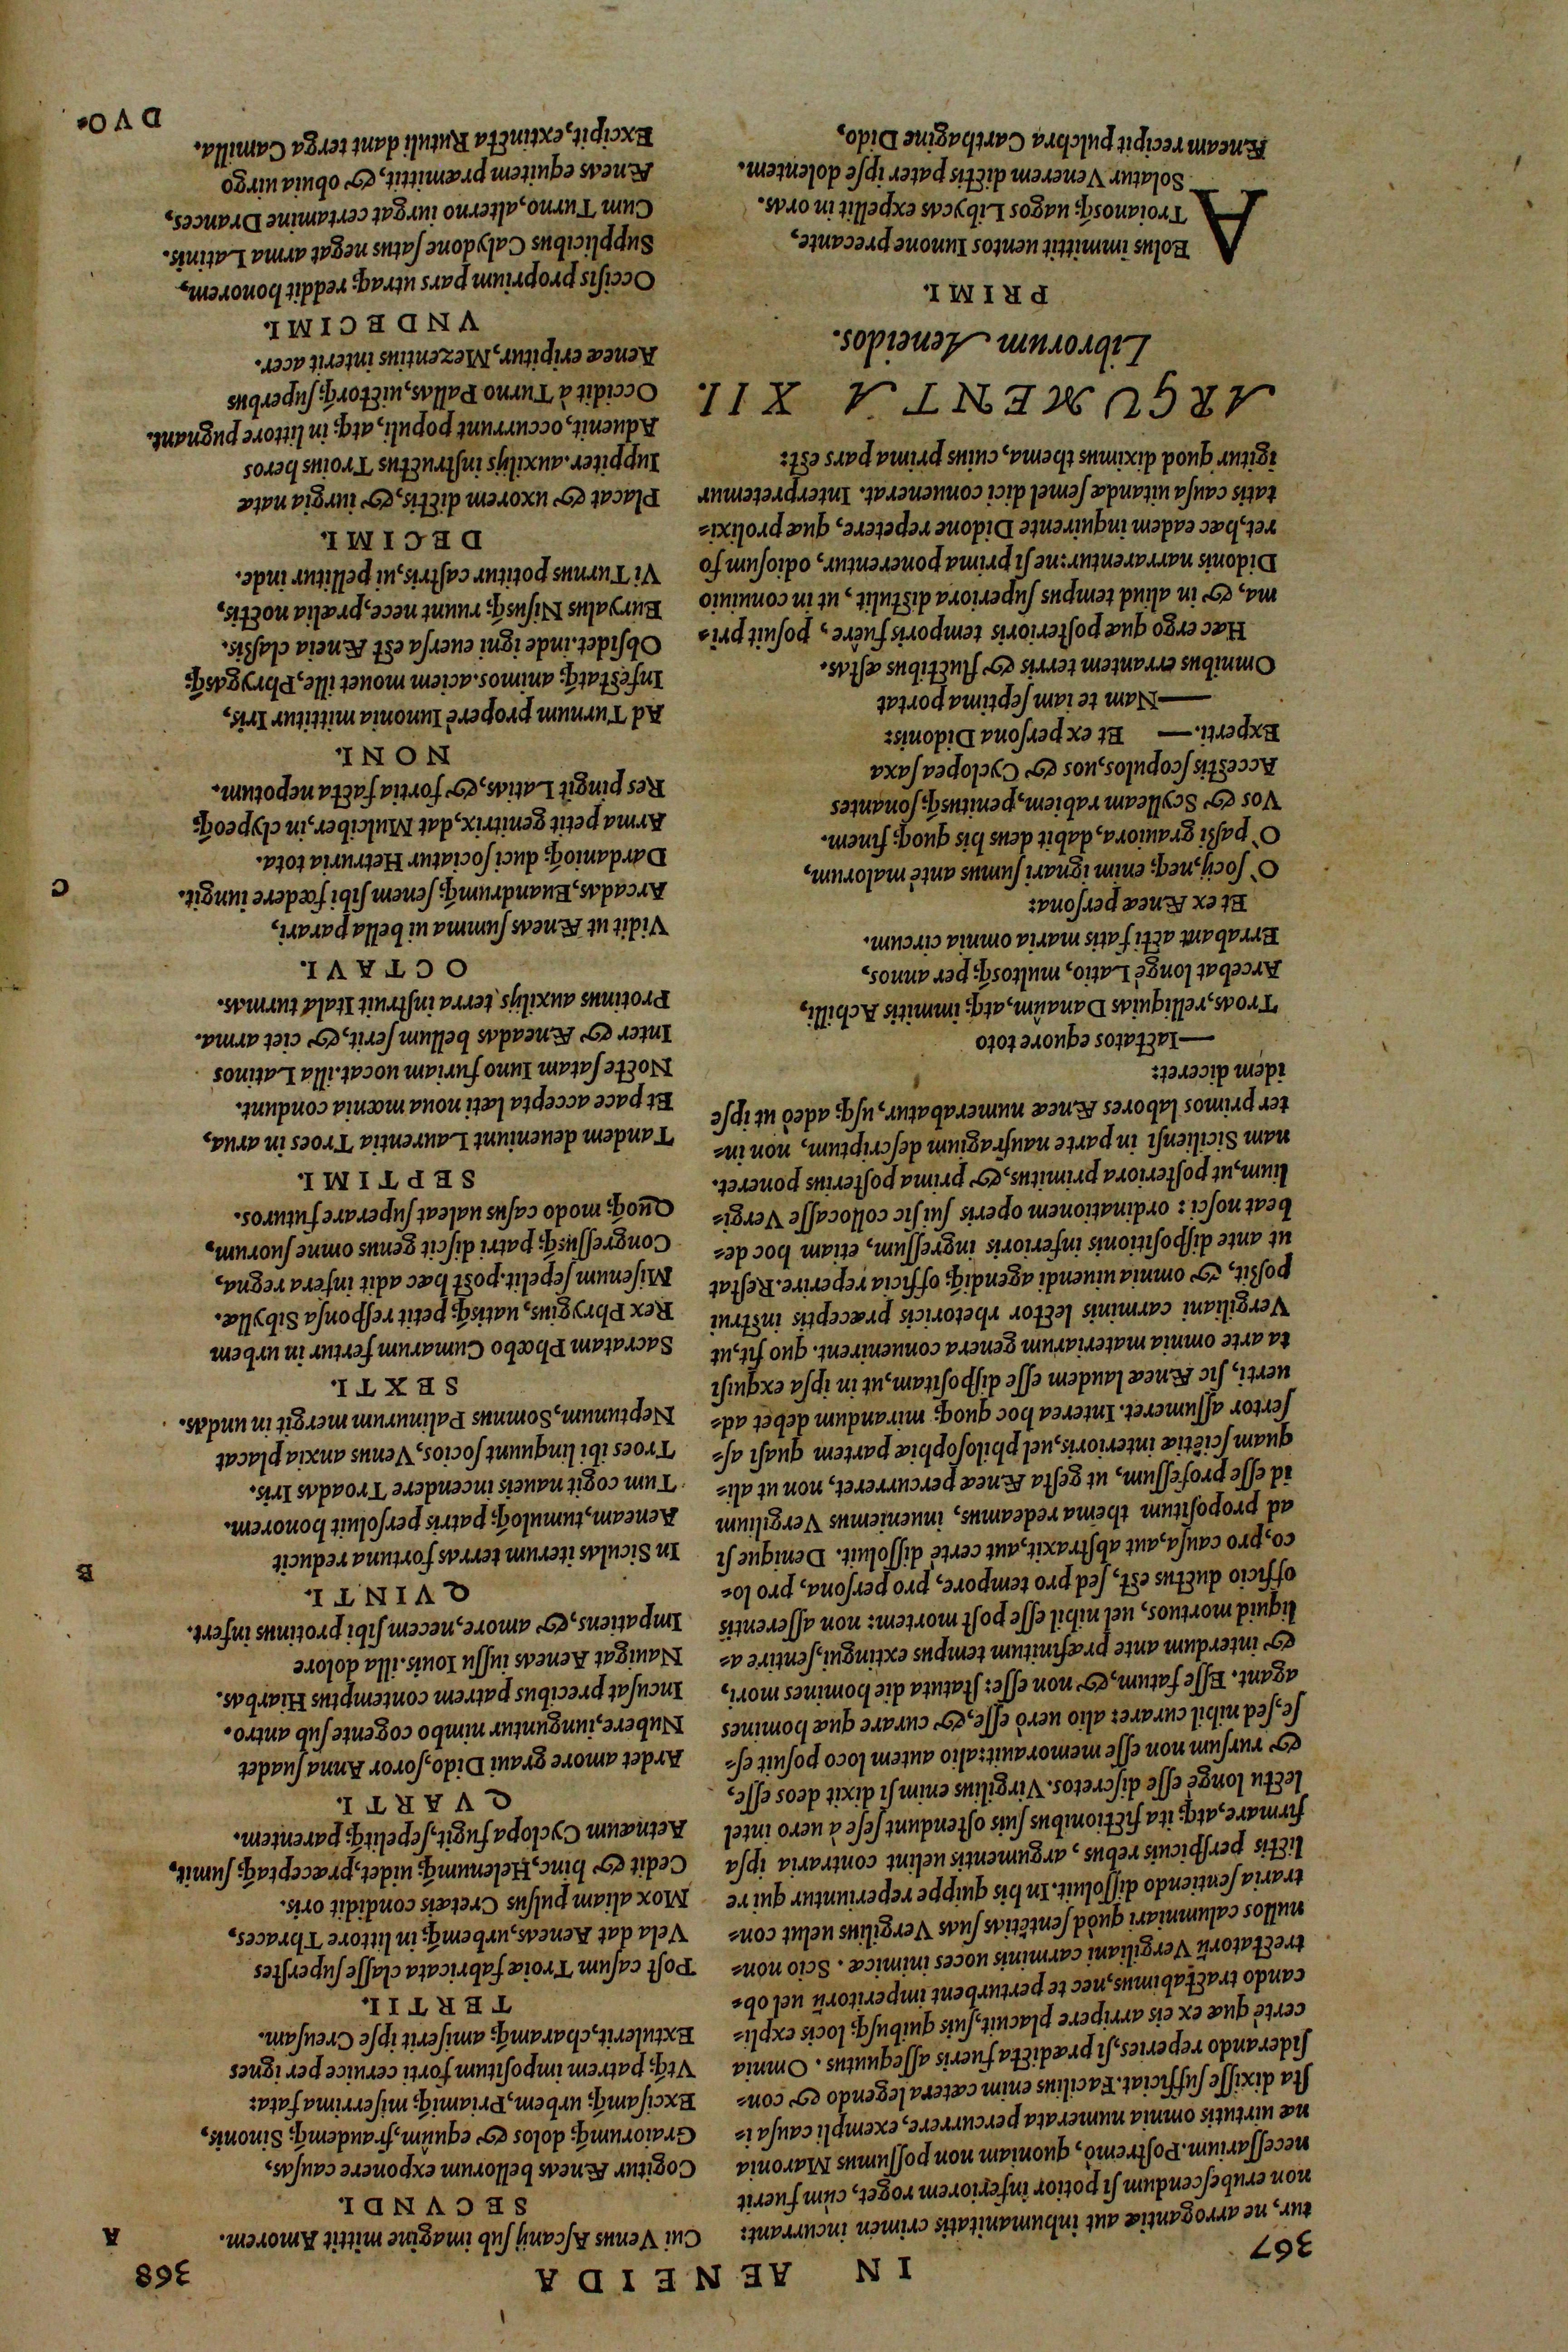 367
IN AENEIDA
368
tur, ne arrogantiæ aut inhumanitatis crimen incurrant:
non erubeſcendum ſi potior inferiorem roget, cùm fuerit
neceſſarium. Poſtremò, quoniam non poſſumus Maronia
næ uirtutis omnia numerata percurrere, exempli cauſa i=
ſta dixiſſe ſufficiat. Facilius enim cætera legendo & con=
ſiderando reperies, ſi prædicta fueris aſſequutus. Omnia
certè quæ ex eis arripere placuit, ſuis quibuſq; locis expli=
cando tractabimus, nec te perturbent imperitorũ uel ob=
trectatorũ Vergiliani carminis uoces inimicæ. Scio non=
nullos calumniari quòd ſentẽtias ſuas Vergilius uelut con=
traria ſentiendo diſſoluit. In his quippe reperiuntur qui re
lictis perſpicuis rebus, argumentis uelint contraria ipſa
firmare, atq; ita fictionibus ſuis oſtendunt ſeſe à uero intel
lectu longè eſſe diſcretos. Virgilius enim ſi dixit deos eſſe,
& rurſum non eſſe memorauit: alio autem loco poſuit eſ=
ſe, ſed nihil curare: alio uerò eſſe, & curare quæ homines
agant. Eſſe fatum, & non eſſe: ſtatuta die homines mori,
& interdum ante præfinitum tempus extingui, ſentire a=
liquid mortuos, uel nihil eſſe poſt mortem: non aſſerentis
officio ductus eſt, ſed pro tempore, pro perſona, pro lo=
co, pro cauſa, aut abſtraxit, aut certè diſſoluit. Denique ſi
ad propoſitum thema redeamus, inueniemus Vergilium
id eſſe profeſſum, ut geſta Æneæ percurreret, non ut ali=
quam ſciẽtiæ interioris, uel philoſophiæ partem quaſi aſ=
ſertor aſſumeret. Interea hoc quoq; mirandum debet ad=
uerti, ſic Æneæ laudem eſſe diſpoſitam, ut in ipſa exquiſi
ta arte omnia materiarum genera conuenirent. quo fit, ut
Vergiliani carminis lector rhetoricis præceptis inſtrui
poßit, & omnia uiuendi agendiq́; officia reperire. Reſtat
ut ante diſpoſitionis inferioris ingreſſum, etiam hoc de=
beat noſci: ordinationem operis ſui ſic collocaſſe Vergi=
lium, ut poſteriora primitus, & prima poſterius poneret.
nam Sicilienſi in parte naufragium deſcriptum, non in=
ter primos labores Æneæ numerabatur, uſq; adeò ut ipſe
idem diceret:
—Iactatos equore toto
Troas, relliquias Danaûm, atq; immitis Achilli,
Arcebat longè Latio, multosq́; per annos,
Errabant acti fatis maria omnia circum.
Et ex Æneæ perſona:
O` ſocij, neq; enim ignari ſumus antè malorum,
O` paßi grauiora, dabit deus his quoq; finem.
Vos & Scylleam rabiem, penitusq́; ſonantes
Acceſtis ſcopulos, uos & Cyclopea ſaxa
Experti. — Et ex perſona Didonis:
—Nam te iam ſeptima portat
Omnibus errantem terris & fluctibus æſtas.
Hæc ergo quæ poſterioris temporis fuêre, poſuit pri=
ma, & in aliud tempus ſuperiora diſtulit, ut in conuiuio
Didonis narrarentur: ne ſi prima ponerentur, odioſum fo
ret, hæc eadem inquirente Didone repetere, quæ prolixi=
tatis cauſa uitandæ ſemel dici conuenerat. Interpretemur
igitur quod diximus thema, cuius prima pars eſt:
ARGUMENTA XII.
Librorum Aeneidos.
PRIMI.
AEolus immittit uentos Iunone precante,
Troianosq́; uagos Libycas expellit in oras.
Solatur Venerem dictis pater ipſe dolentem.
Æneam recipit pulchra Carthagine Dido,
Cui Venus Aſcanij ſub imagine mittit Amorem.
A
SECVNDI.
Cogitur Æneas bellorum exponere cauſas,
Graiorumq́; dolos & equûm, fraudemq́; Sinonis,
Exciſamq́; urbem, Priamiq́; miſerrima fata:
Vtq́; patrem impoſitum forti ceruice per ignes
Extulerit, charamq́; amiſerit ipſe Creuſam.
TERTII.
Poſt caſum Troiæ fabricata claſſe ſuperſtes
Vela dat Aeneas, urbemq́; in littore Thraces,
Mox aliam pulſus Cretæis condidit oris.
Cedit & hinc, Helenumq́; uidet, præceptaq́; ſumit,
Aetnæum Cyclopa fugit, ſepelitq́; parentem.
QVARTI.
Ardet amore graui Dido, ſoror Anna ſuadet
Nubere, iunguntur nimbo cogente ſub antro.
Incuſat precibus patrem contemptus Hiarbas.
Nauigat Aeneas iuſſu Iouis. illa dolore
Impatiens, & amore, necem ſibi protinus infert.
QVINTI.
B
In Siculas iterum terras fortuna reducit
Aeneam, tumuloq́; patris perſoluit honorem.
Tum cogit naueis incendere Troadas Iris.
Troes ibi linquunt ſocios, Venus anxia placat
Neptunum, Somnus Palinurum mergit in undas.
SEXTI.
Sacratam Phœbo Cumarum fertur in urbem
Rex Phrygius, uatisq́; petit reſponſa Sibyllæ.
Miſenum ſepelit. poſt hæc adit infera regna,
Congreſſusq́; patri diſcit genus omne ſuorum,
Quoq́; modo caſus ualeat ſuperare futuros.
SEPTIMI.
Tandem deueniunt Laurentia Troes in arua,
Et pace accepta læti noua mœnia condunt.
Nocte ſatam Iuno furiam uocat. illa Latinos
Inter & Æneadas bellum ſerit, & ciet arma.
Protinus auxilijs terra inſtruit Itala turmas.
OCTAVI.
Vidit ut Æneas ſumma ui bella parari,
Arcadas, Euandrumq́; ſenem ſibi fœdere iungit.
C
Dardanioq́; duci ſociatur Hetruria tota.
Arma petit genitrix, dat Mulciber, in clypeoq́;
Res pingit Latias, & fortia facta nepotum.
NONI.
Ad Turnum properè Iunonia mittitur Iris,
Infeſtatq́; animos. aciem mouet ille, Phrygasq́;
Obſidet. inde igni euerſa eſt Æneia claßis.
Euryalus Niſusq́; ruunt nece, prælia noctis,
Vi Turnus potitur caſtris, ui pellitur inde.
DECIMI.
Placat & uxorem dictis, & iurgia natæ
Iuppiter. auxilijs inſtructus Troius heros
Aduenit, occurrunt populi, atq; in littore pugnant.
Occidit à Turno Pallas, uictorq́; ſuperbus
Aeneæ eripitur, Mezentius interit acer.
VNDECIMI.
Occiſis proprium pars utraq; reddit honorem,
Supplicibus Calydone ſatus negat arma Latinis.
Cum Turno, alterno iurgat certamine Drances,
Æneas equitem præmittit, & obuia uirgo
Excipit, extincta Rutuli dant terga Camilla.
DVO=